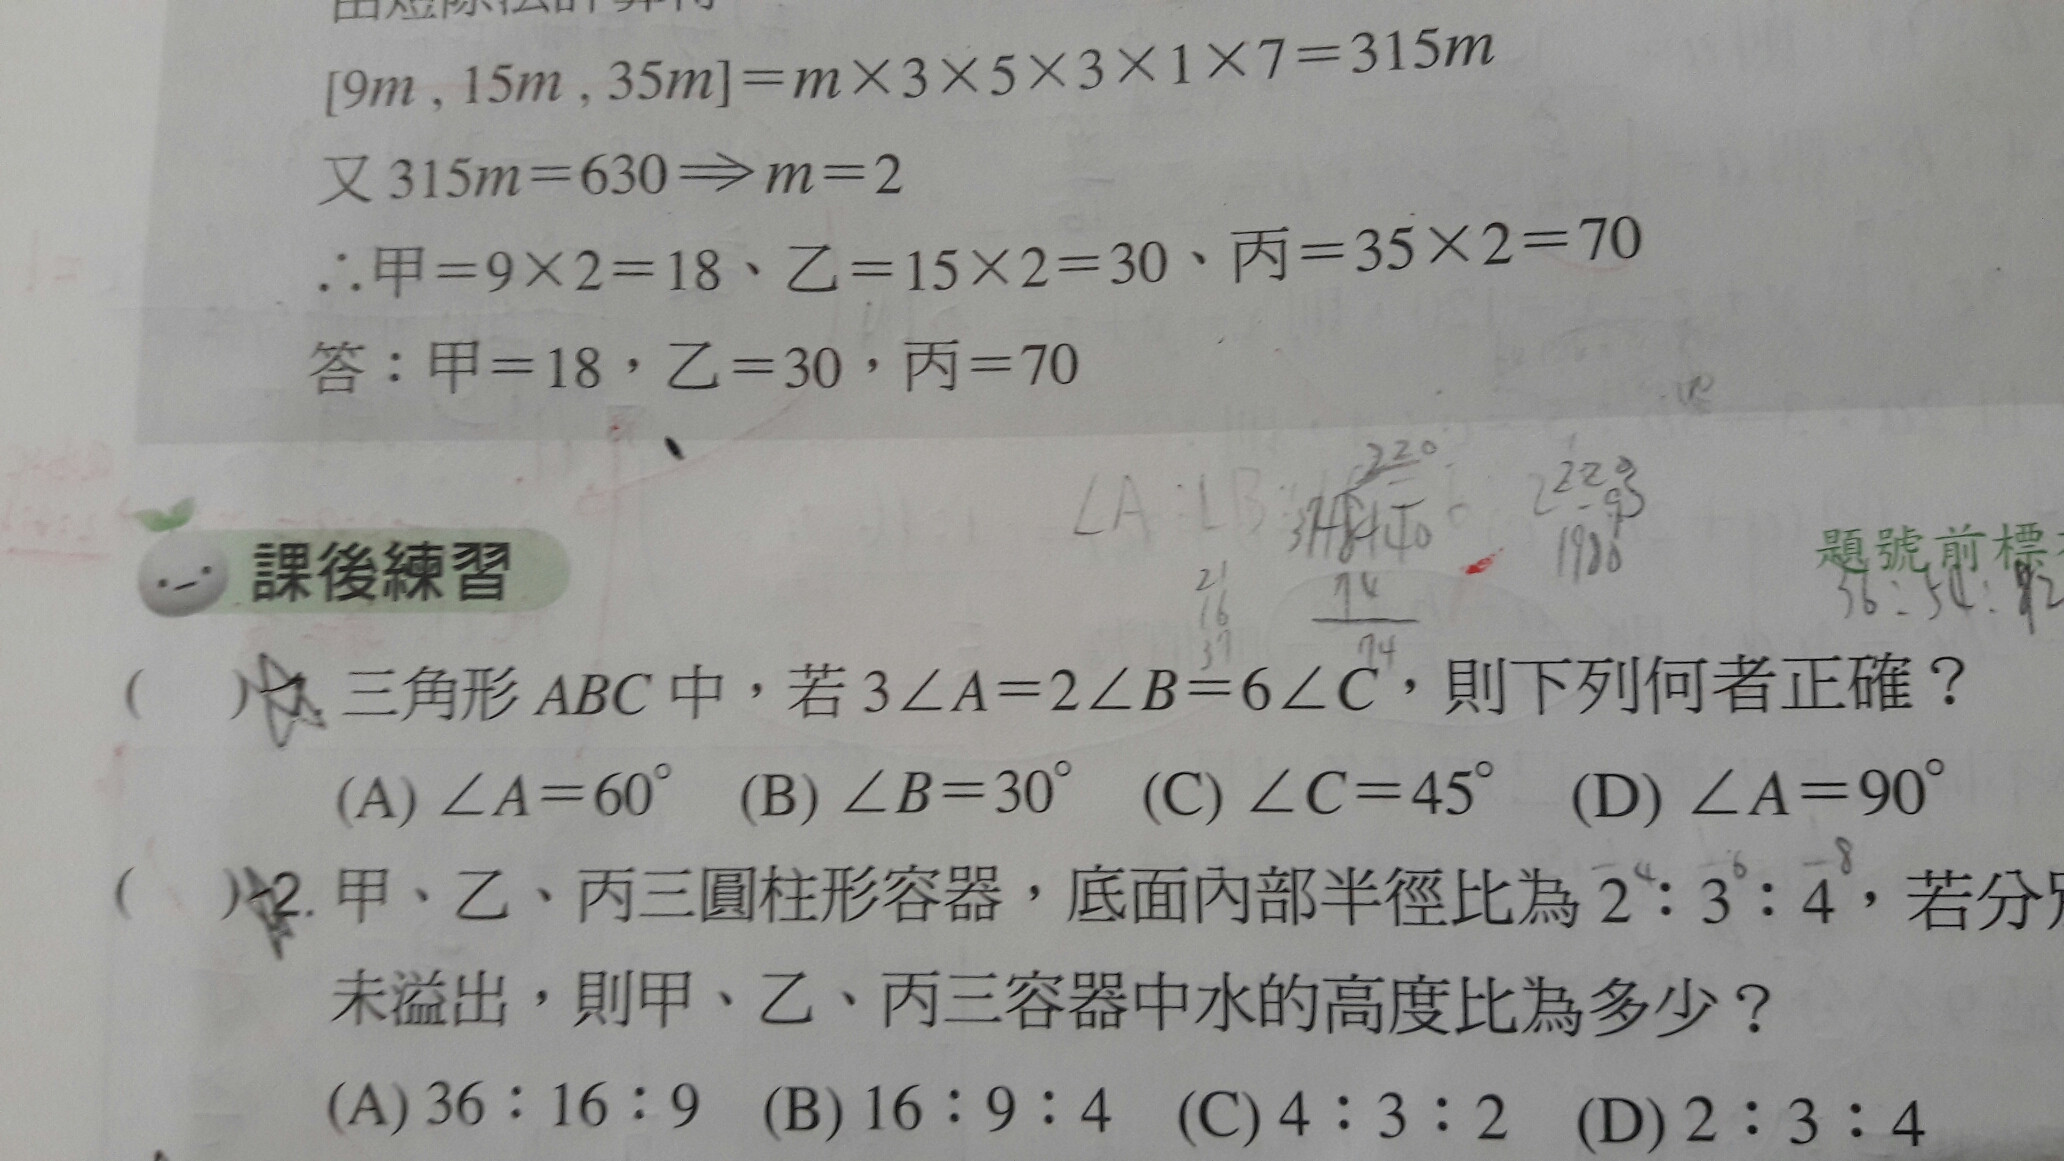 [9m , 15m , 35m]＝m×3×5×3×1×7＝315m
又 315m＝630⇒m＝2
∴甲＝9×2＝18、乙＝15×2＝30、丙＝35×2＝70
答：甲＝18，乙＝30，丙＝70
∠A：∠B：
220
74
74
21
16
37
1980
課後練習
題號前標
36：54：
(　) 1. 三角形 ABC 中，若 3∠A＝2∠B＝6∠C，則下列何者正確？
(A) ∠A＝60° (B) ∠B＝30° (C) ∠C＝45° (D) ∠A＝90°
4 6 8
(　) 2. 甲、乙、丙三圓柱形容器，底面內部半徑比為 2：3：4，若分
未溢出，則甲、乙、丙三容器中水的高度比為多少？
(A) 36：16：9 (B) 16：9：4 (C) 4：3：2 (D) 2：3：4